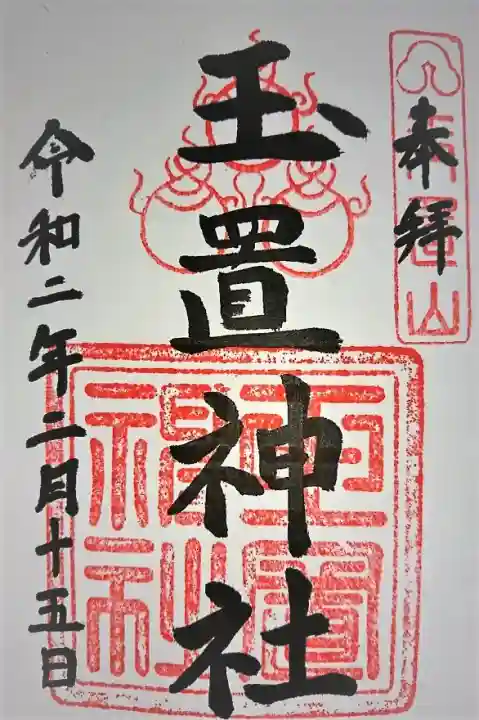 奉拝
玉置神社
令和二年二月十五日